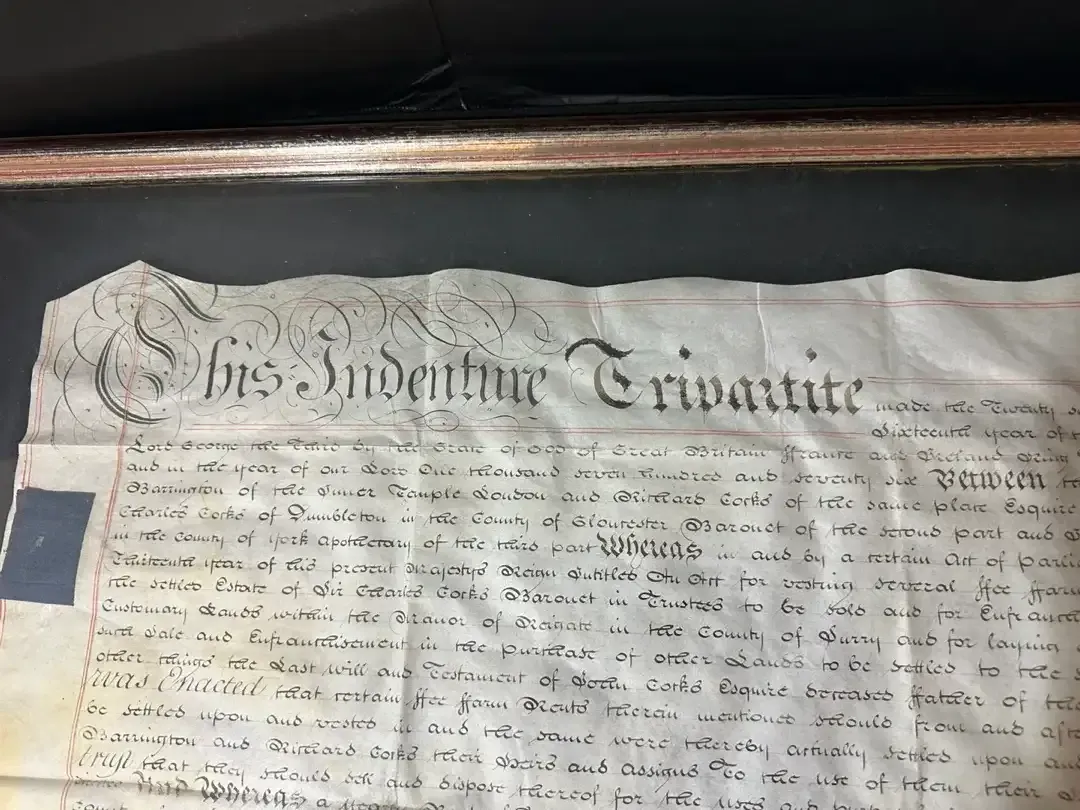 This Indenture Tripartite made the Twenty
Sixteenth year of
Lord George the Third by the Grace of God of Great Britain ffrance and Ireland King
and in the year of our Lord One thousand seven hundred and seventy six Between
Barrington of the Inner Temple London and Richard Cocks of the same place Esquire
Charles Cocks of Dumbleton in the County of Gloucester Baronet of the second part and
in the County of York Apothecary of the third part Whereas in and by a certain Act of
Thirteenth year of his present Majestys Reign Intitled An Act for vesting several ffee
the settled Estate of Sir Charles Cocks Baronet in Trustees to be sold and for
Customary Lands within the Manor of Reigate in the County of Surry and for laying
such Sale and Enfranchisement in the purchase of other Lands to be settled to the
other things the Last will and Testament of John Cocks Esquire deceased ffather of
was Enacted that certain ffee ffarm Rents therein mentioned should from and
be settled upon and vested in and the same were thereby actually settled upon
Barrington and Richard Cocks their Heirs and assigns To the use of them their
trust that they should sell and dispose thereof for the uses and
And Whereas a